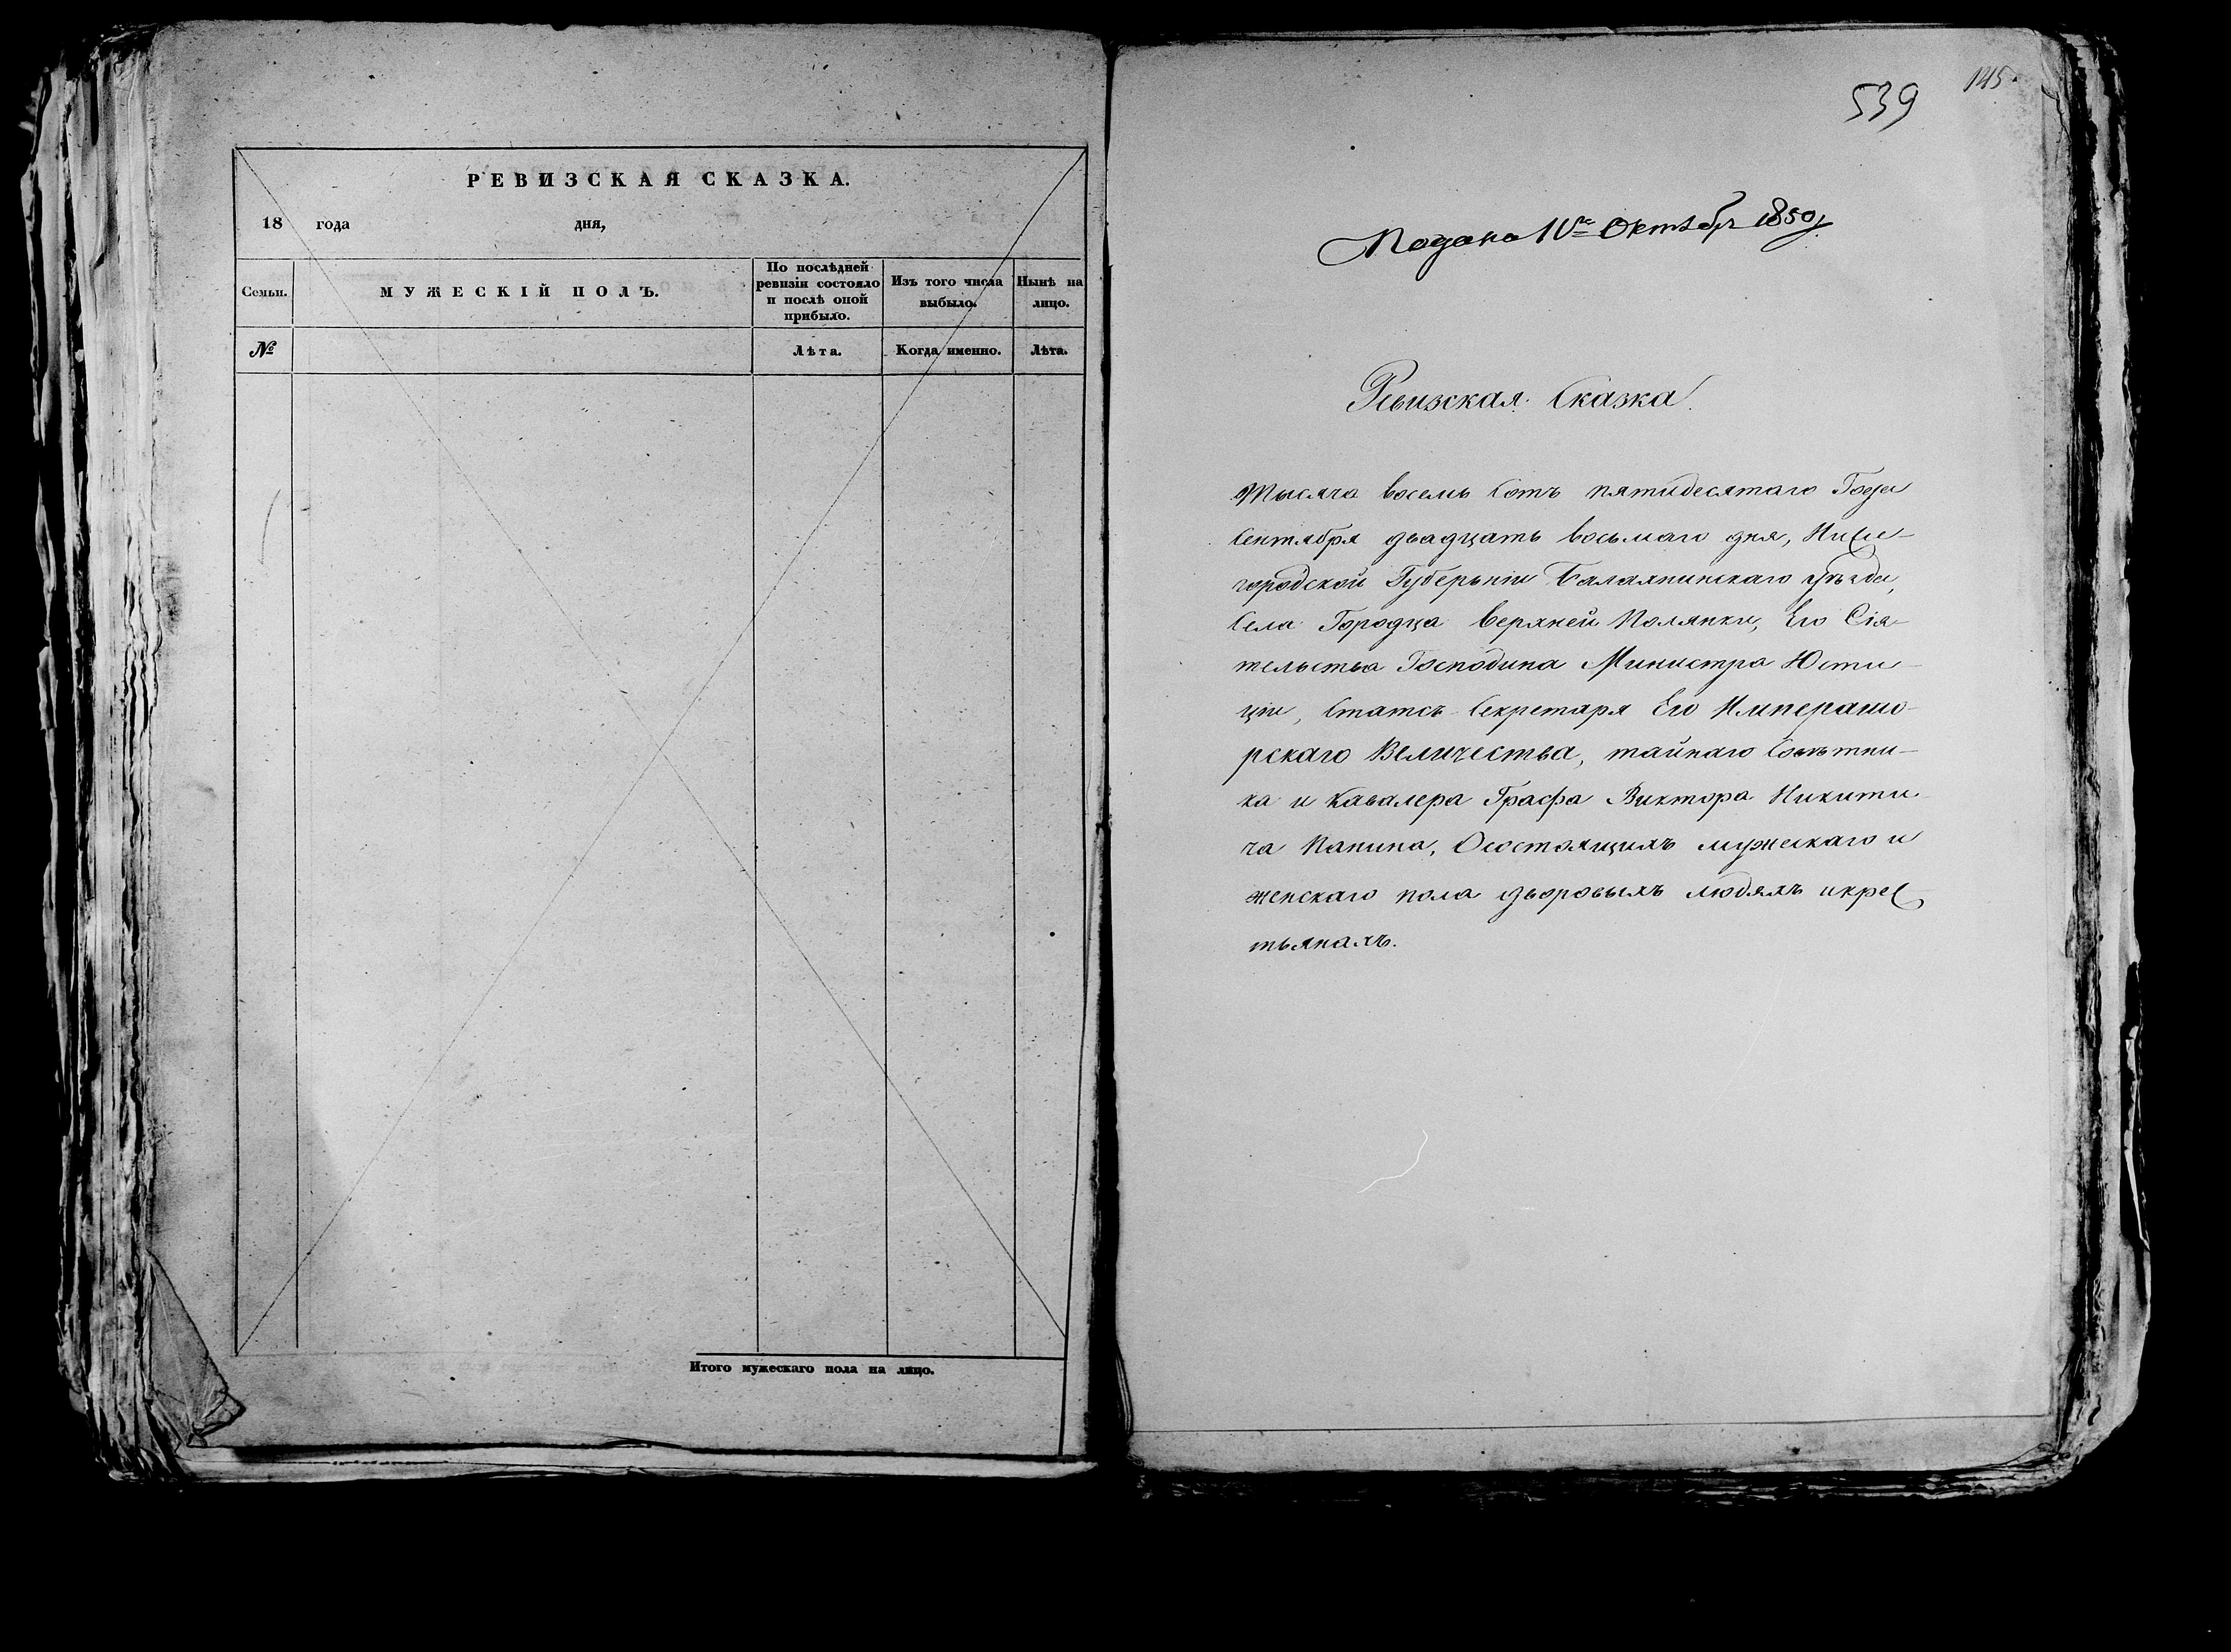 РЕВИЗСКАЯ СКАЗКА.
18 года дня,
Семьи. МУЖЕСКІЙ ПОЛЪ. По послѣдней ревизіи состояло и послѣ оной прибыло. Изъ того числа выбыло. Нынѣ на лицо.
№ Лѣта. Когда именно. Лѣта.
Итого мужескаго пола на лицо.
539
145
Подана Октября 1850
Ревизская Сказка.
Тысяча восемь Сотъ пятидесятаго Года
Сентября двадцать восьмаго дня, Ниже-
городской Губерьніи Балахнинскаго уѣзда,
Села Городца верхней Полянки, Его Сія-
тельства Господина Министра Юсти-
ціи, Статсъ-Секретаря Его Императо-
рскаго Величества, тайнаго Совѣтни-
ка и Кавалера Графа Виктора Никити-
ча Панина, Осостоящихъ мужескаго и
женскаго пола дворовыхъ людяхъ икрес
тьянахъ.